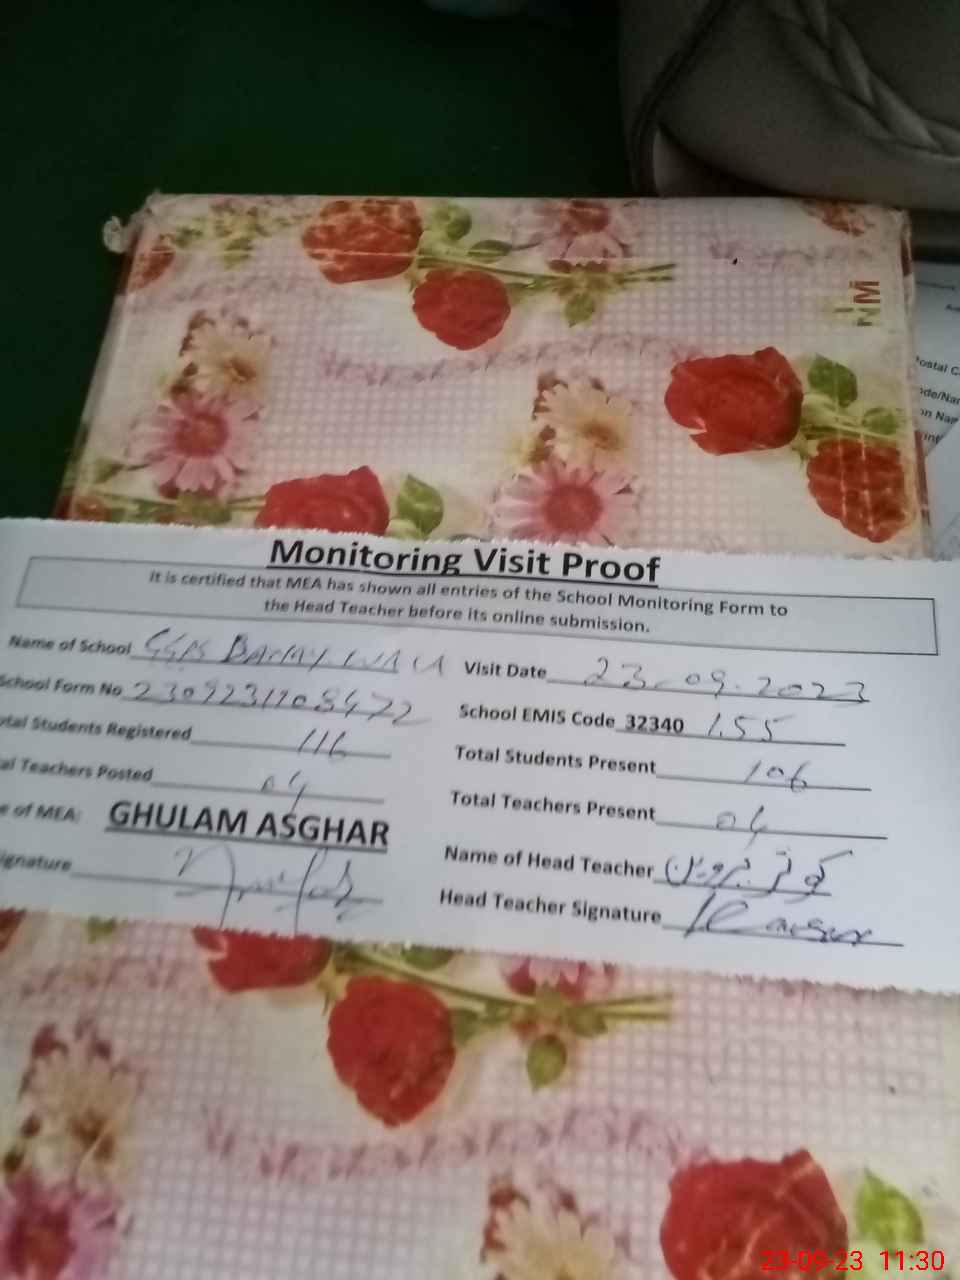 NM
ostal C
ode/Nar
on Nam
Monitoring Visit Proof
It is certified that MEA has shown all entries of the School Monitoring Form to
the Head Teacher before its online submission.
Name of School Visit Date 23-09-2023
School Form No School EMIS Code 32340 155
otal Students Registered 116 Total Students Present 106
al Teachers Posted 04 Total Teachers Present 04
e of MEA: GHULAM ASGHAR Name of Head Teacher کوثر پروین
ignature Head Teacher Signature Kausar
23-09-23 11:30